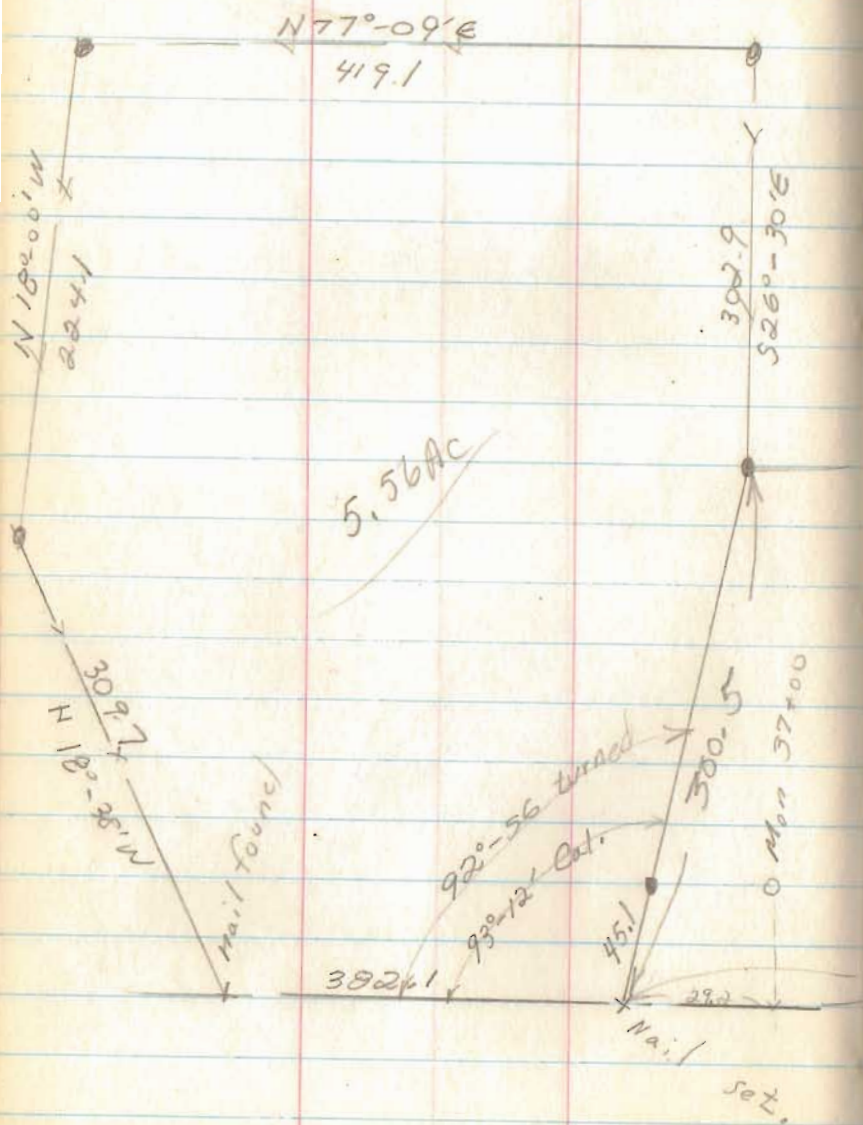 N77°-09'E
419.1
N 18°-00' W
224.1
302.9
S26°-30'E
5.56 Ac
309.7
N 18°-38' W
Nail found
92°-56 turned
93°-12' Cal.
300.5
O Mon 37+00
45.1
382.1
29.2
Nail
set.